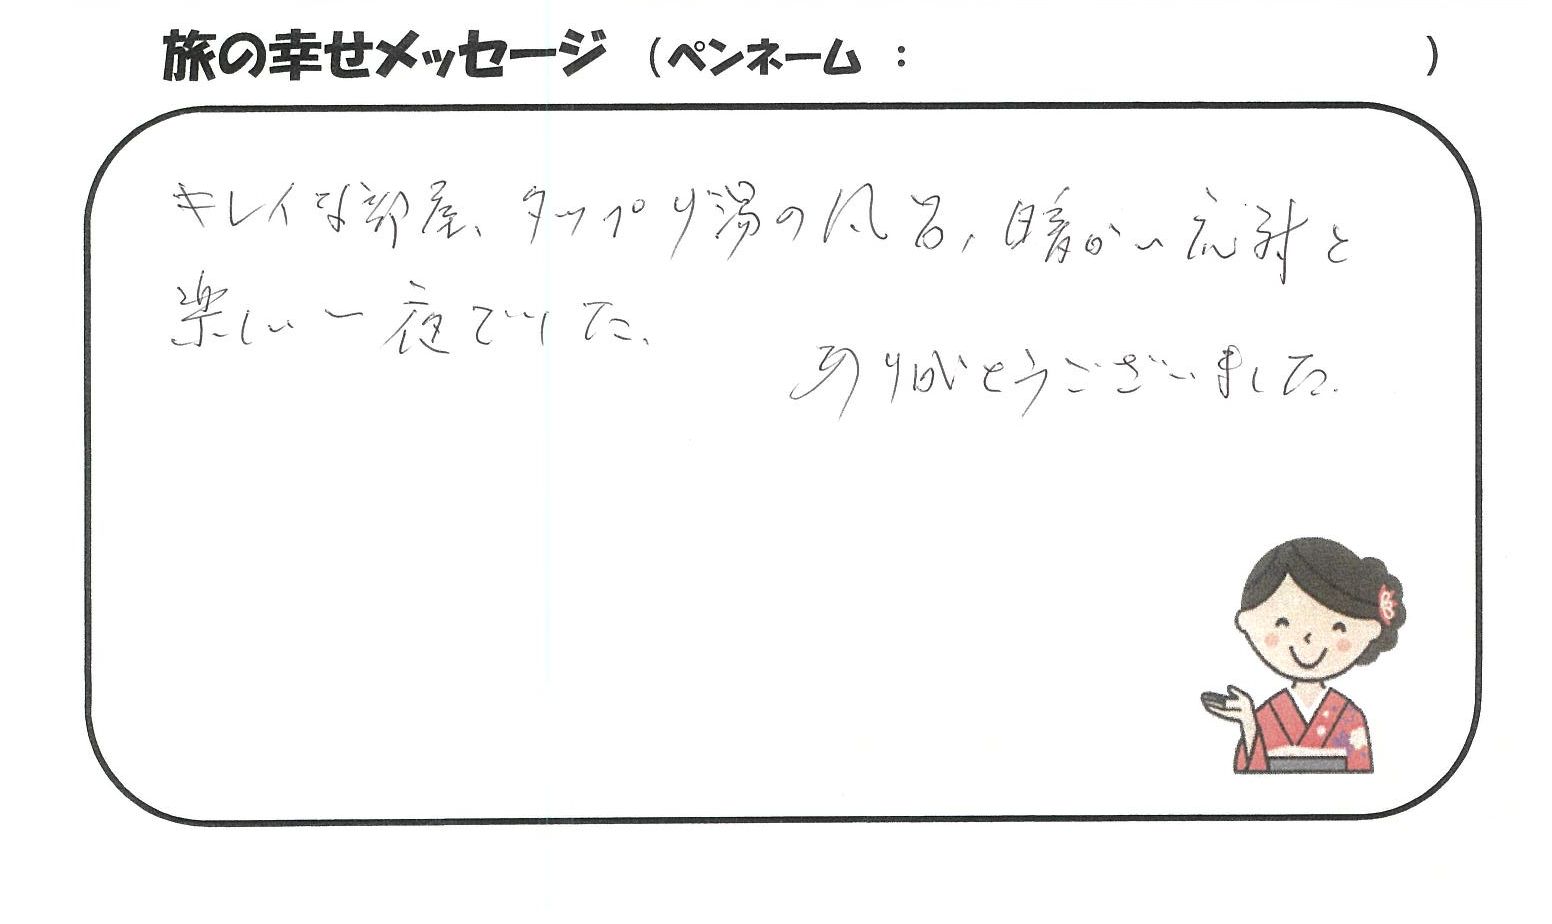 旅の幸せメッセージ （ペンネーム ： ）
キレイな部屋、タップリ湯の風呂、暖かい応対と
楽しい一夜でした。
ありがとうございました。